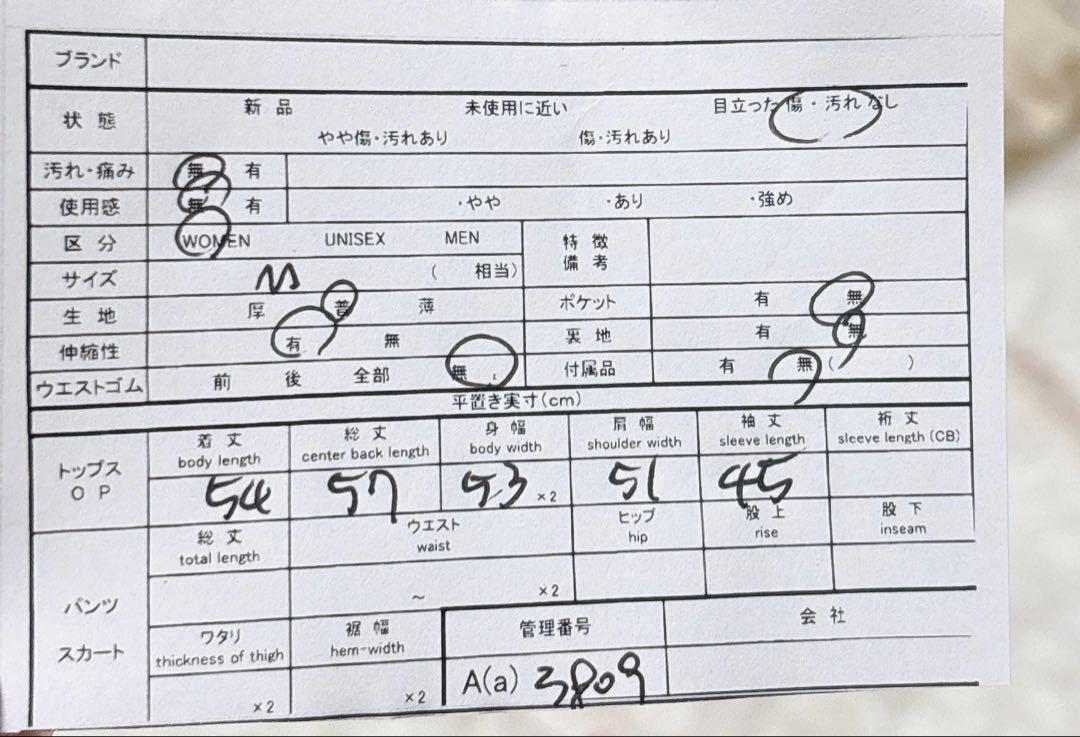 ブランド
状態 新品 未使用に近い 目立った傷・汚れなし
やや傷・汚れあり 傷・汚れあり
汚れ・痛み 無 有
使用感 無 有 ・やや ・あり ・強め
区分 WOMEN UNISEX MEN 特徴
備考
サイズ M ( 相当)
生地 厚 普 薄 ポケット 有 無
伸縮性 有 無 裏地 有 無
ウエストゴム 前 後 全部 無 付属品 有 無 ( )
平置き実寸(cm)
トップス
OP
着丈 総丈 身幅 肩幅 袖丈 裄丈
body length center back length body width shoulder width sleeve length sleeve length (CB)
54 57 53 ×2 51 45
パンツ
スカート
総丈 ウエスト ヒップ 股上 股下
total length waist hip rise inseam
～ ×2
ワタリ 裾幅 管理番号 会社
thickness of thigh hem-width
×2 ×2 A(a) 3809